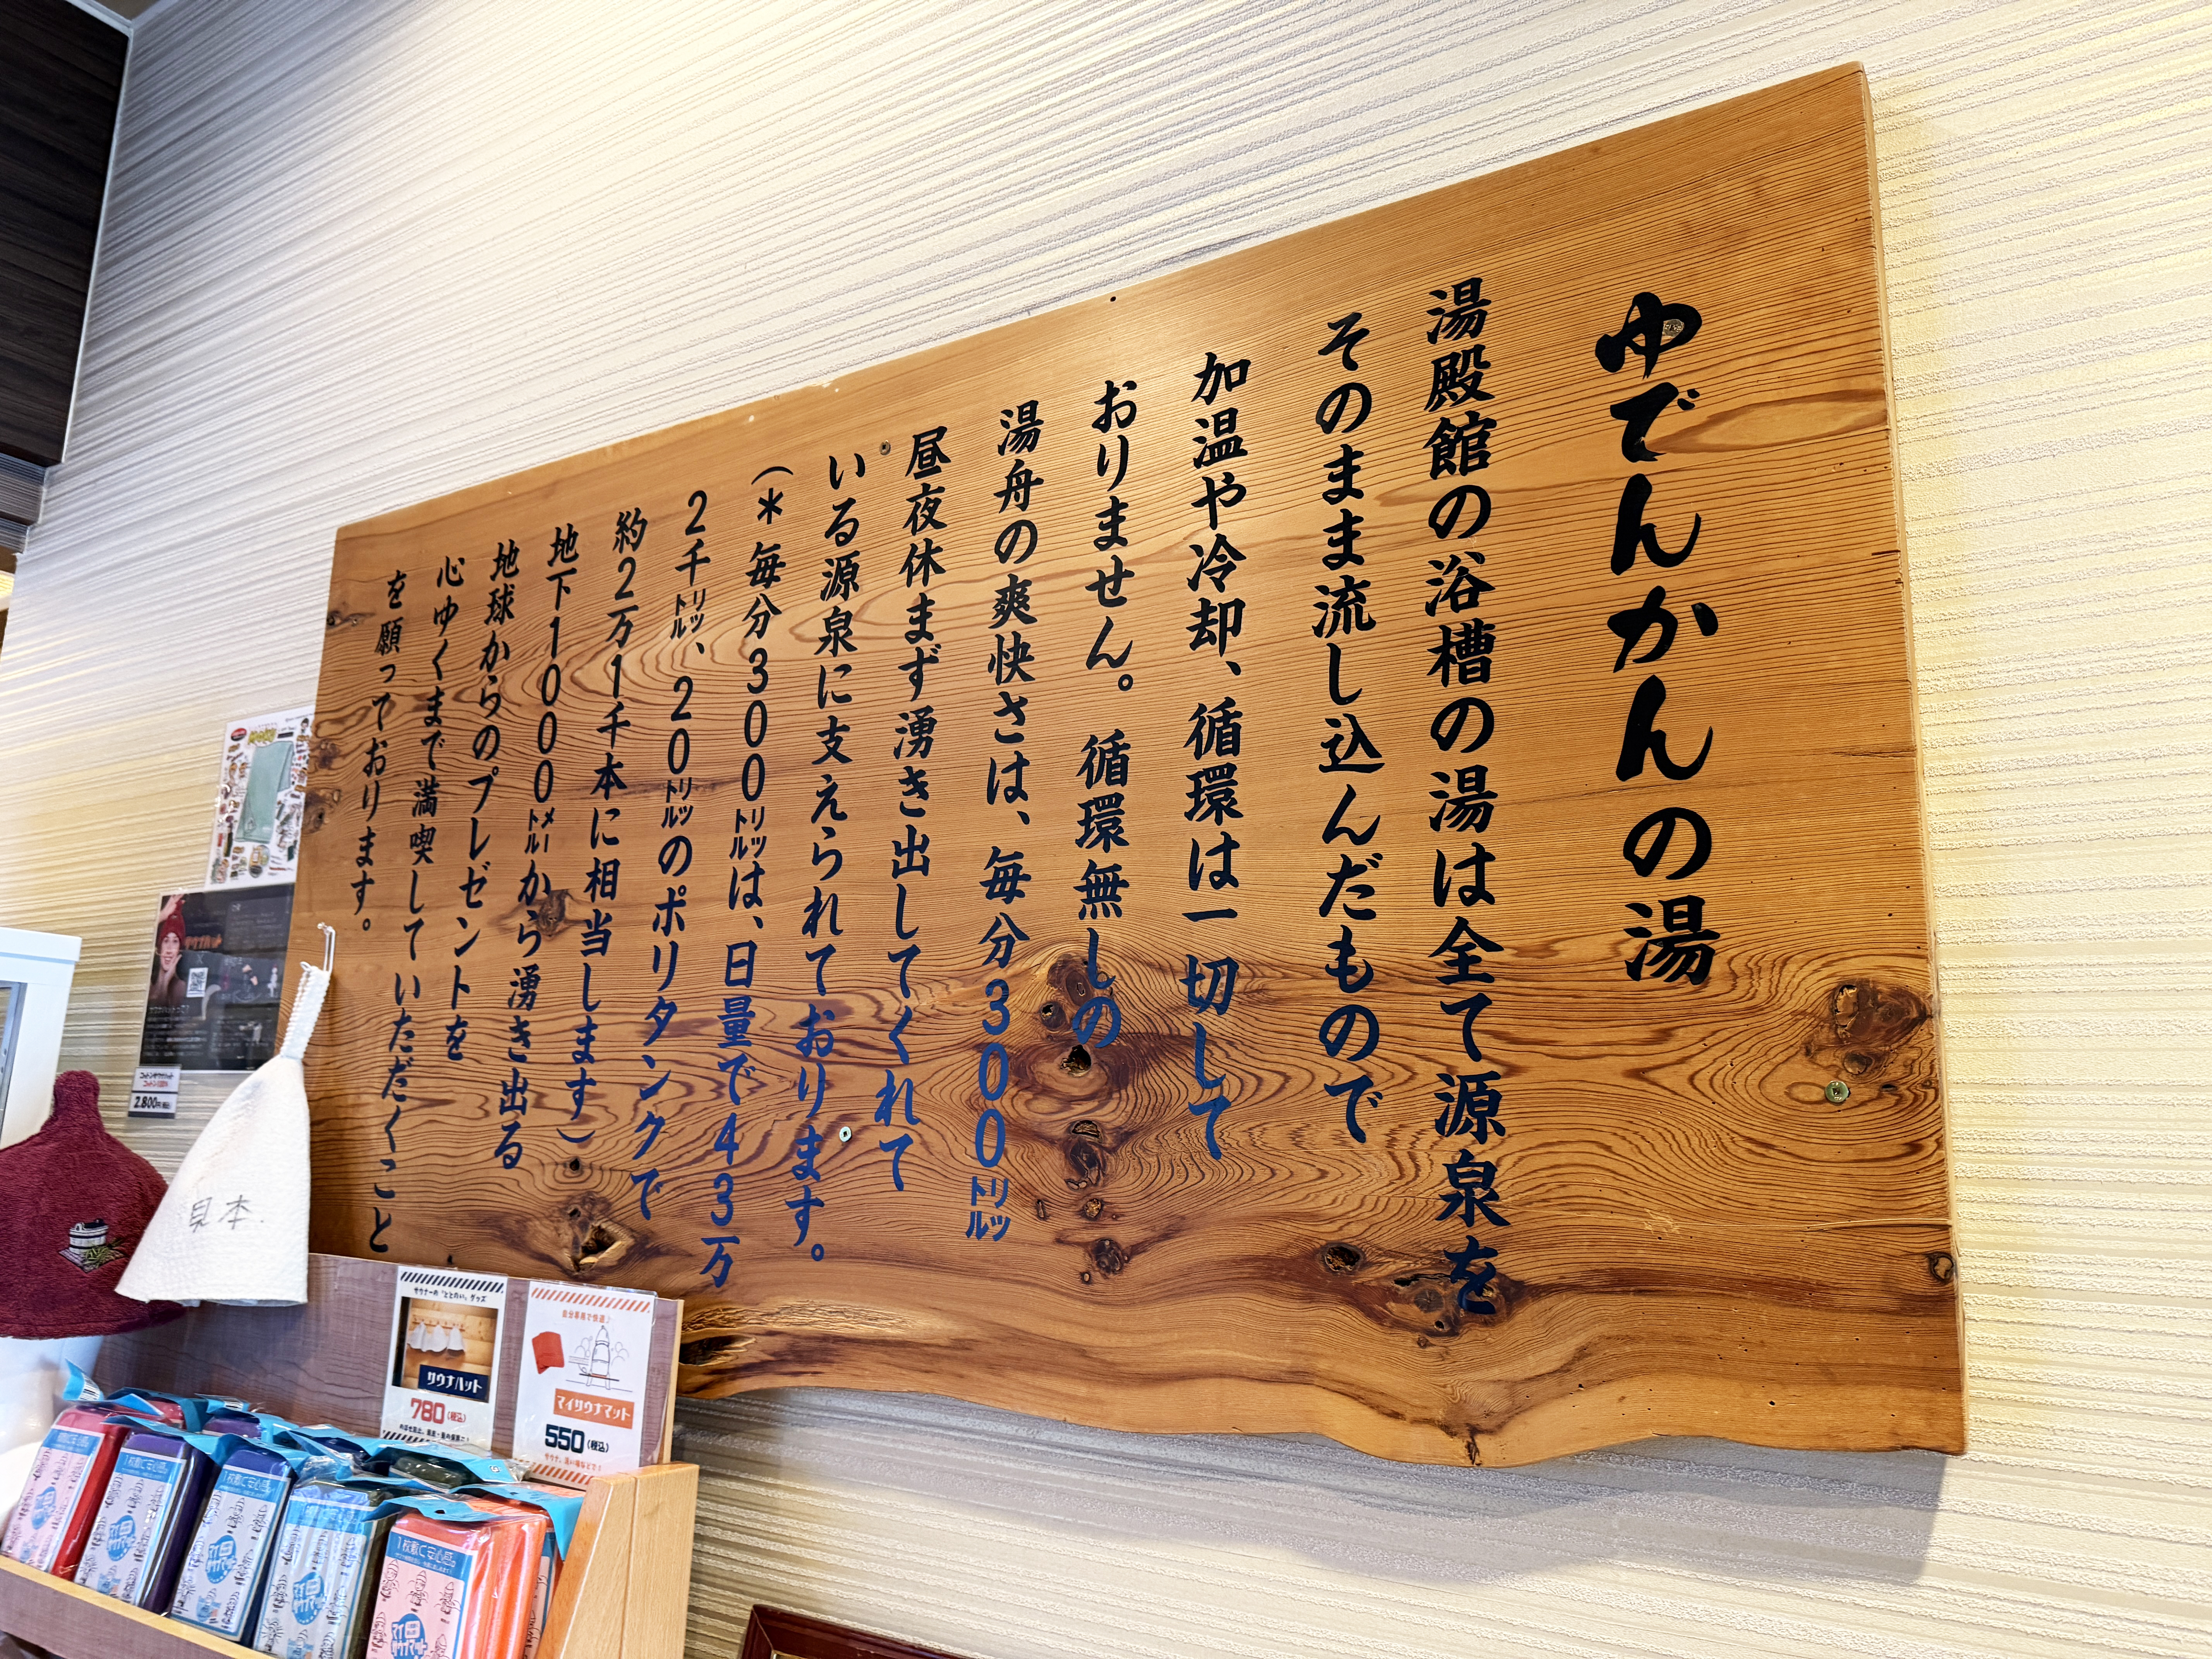 ゆでんかんの湯
湯殿館の浴槽の湯は全て源泉を
そのまま流し込んだもので
加温や冷却、循環は一切して
おりません。循環無しの
湯舟の爽快さは、毎分300㍑
昼夜休まず湧き出してくれて
いる源泉に支えられております。
(*毎分300㍑は、日量で43万
2千㍑、20㍑のポリタンクで
約2万1千本に相当します)
地下1000㍍から湧き出る
地球からのプレゼントを
心ゆくまで満喫していただくこと
を願っております。
見本.
2,800円(税込)
サウナーの「ととのい」グッズ
サウナハット
780(税込)
自分専用で快適♪
マイサウナマット
550(税込)
1枚敷く安心感。
1枚敷く安心感。
マイサウナマット